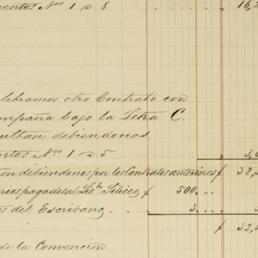 mentos Nos 1 a 8 " 16,2
lebramos otro Contrato con
ompañia bajo la Letra C.
ultan debiendonos
ntos Nos 1 a 5 " 3,
on debiendonos por los Contratos anteriores $ 32,
pagados al $ 500 " "
s del Escribano 3 " "
$ 32,
de la Convencion